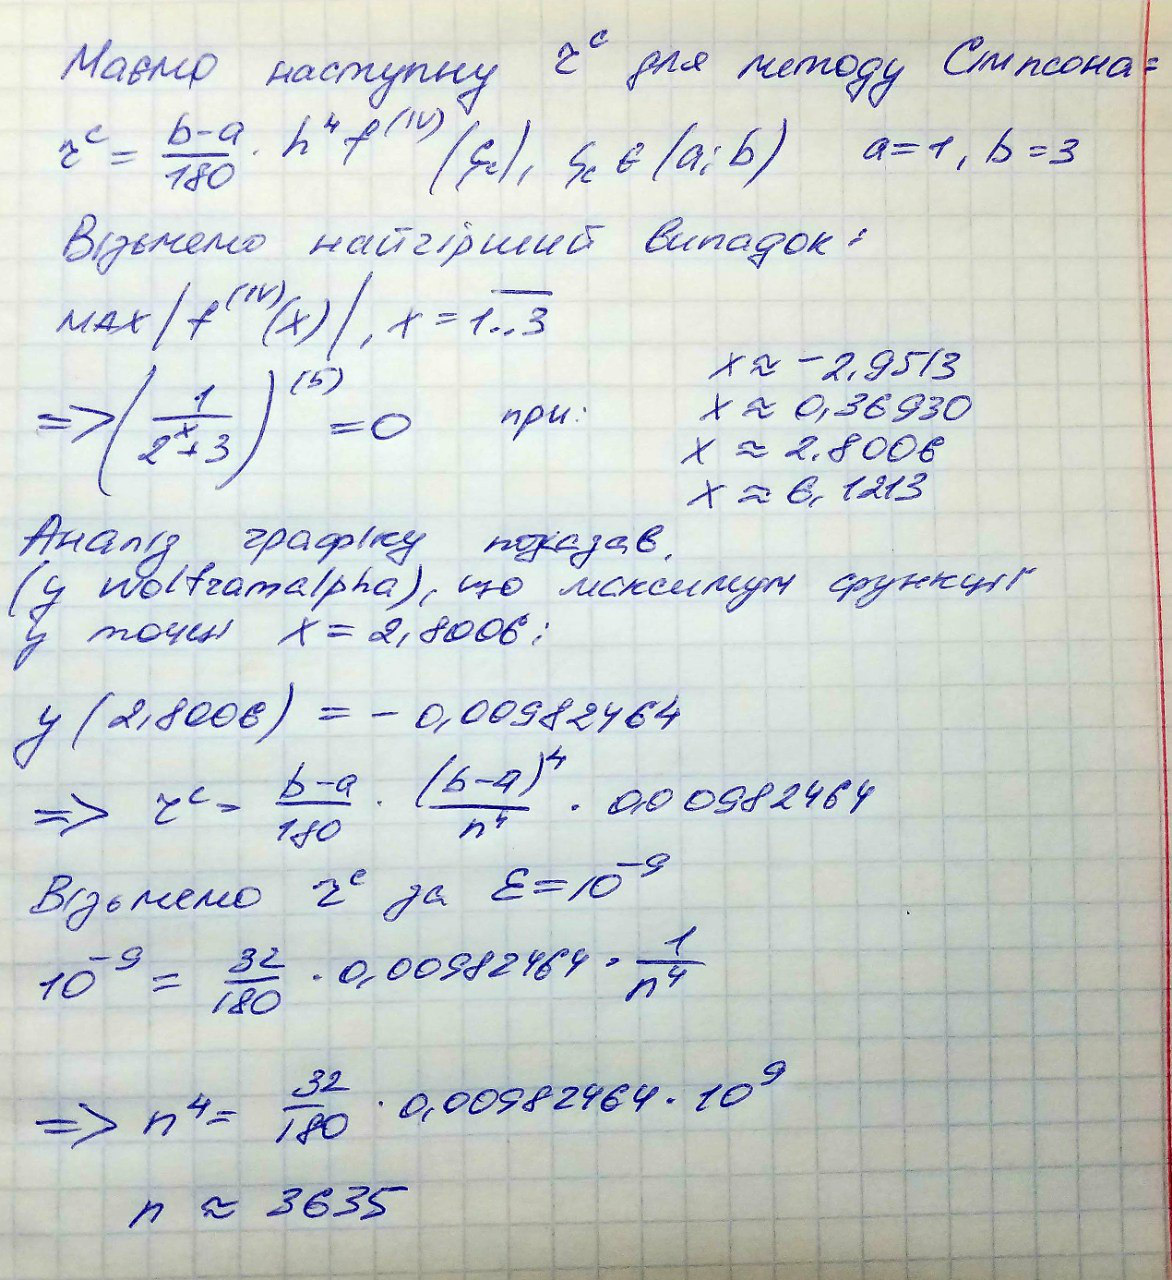 Маємо наступну r^c для методу Сімпсона:
r^c = (b-a)/180 · h^4 f^(IV) (ξ_c), ξ_c ∈ (a; b) a=1, b=3
Візьмемо найгірший випадок:
MAX |f^(IV)(x)|, x = 1..3
=> (1/(2^x+3))^(5) = 0 при:
x ≈ -2,9513
x ≈ 0,36930
x ≈ 2.8006
x ≈ 6,1213
Аналіз графіку показав,
(у wolframalpha), що максимум функції
у точці x = 2,8006:
y(2,8006) = -0,00982464
=> r^c = (b-a)/180 · (b-a)^4/n^4 · 0,00982464
Візьмемо r^c за ε=10^-9
10^-9 = 32/180 · 0,00982464 · 1/n^4
=> n^4 = 32/180 · 0,00982464 · 10^9
n ≈ 3635